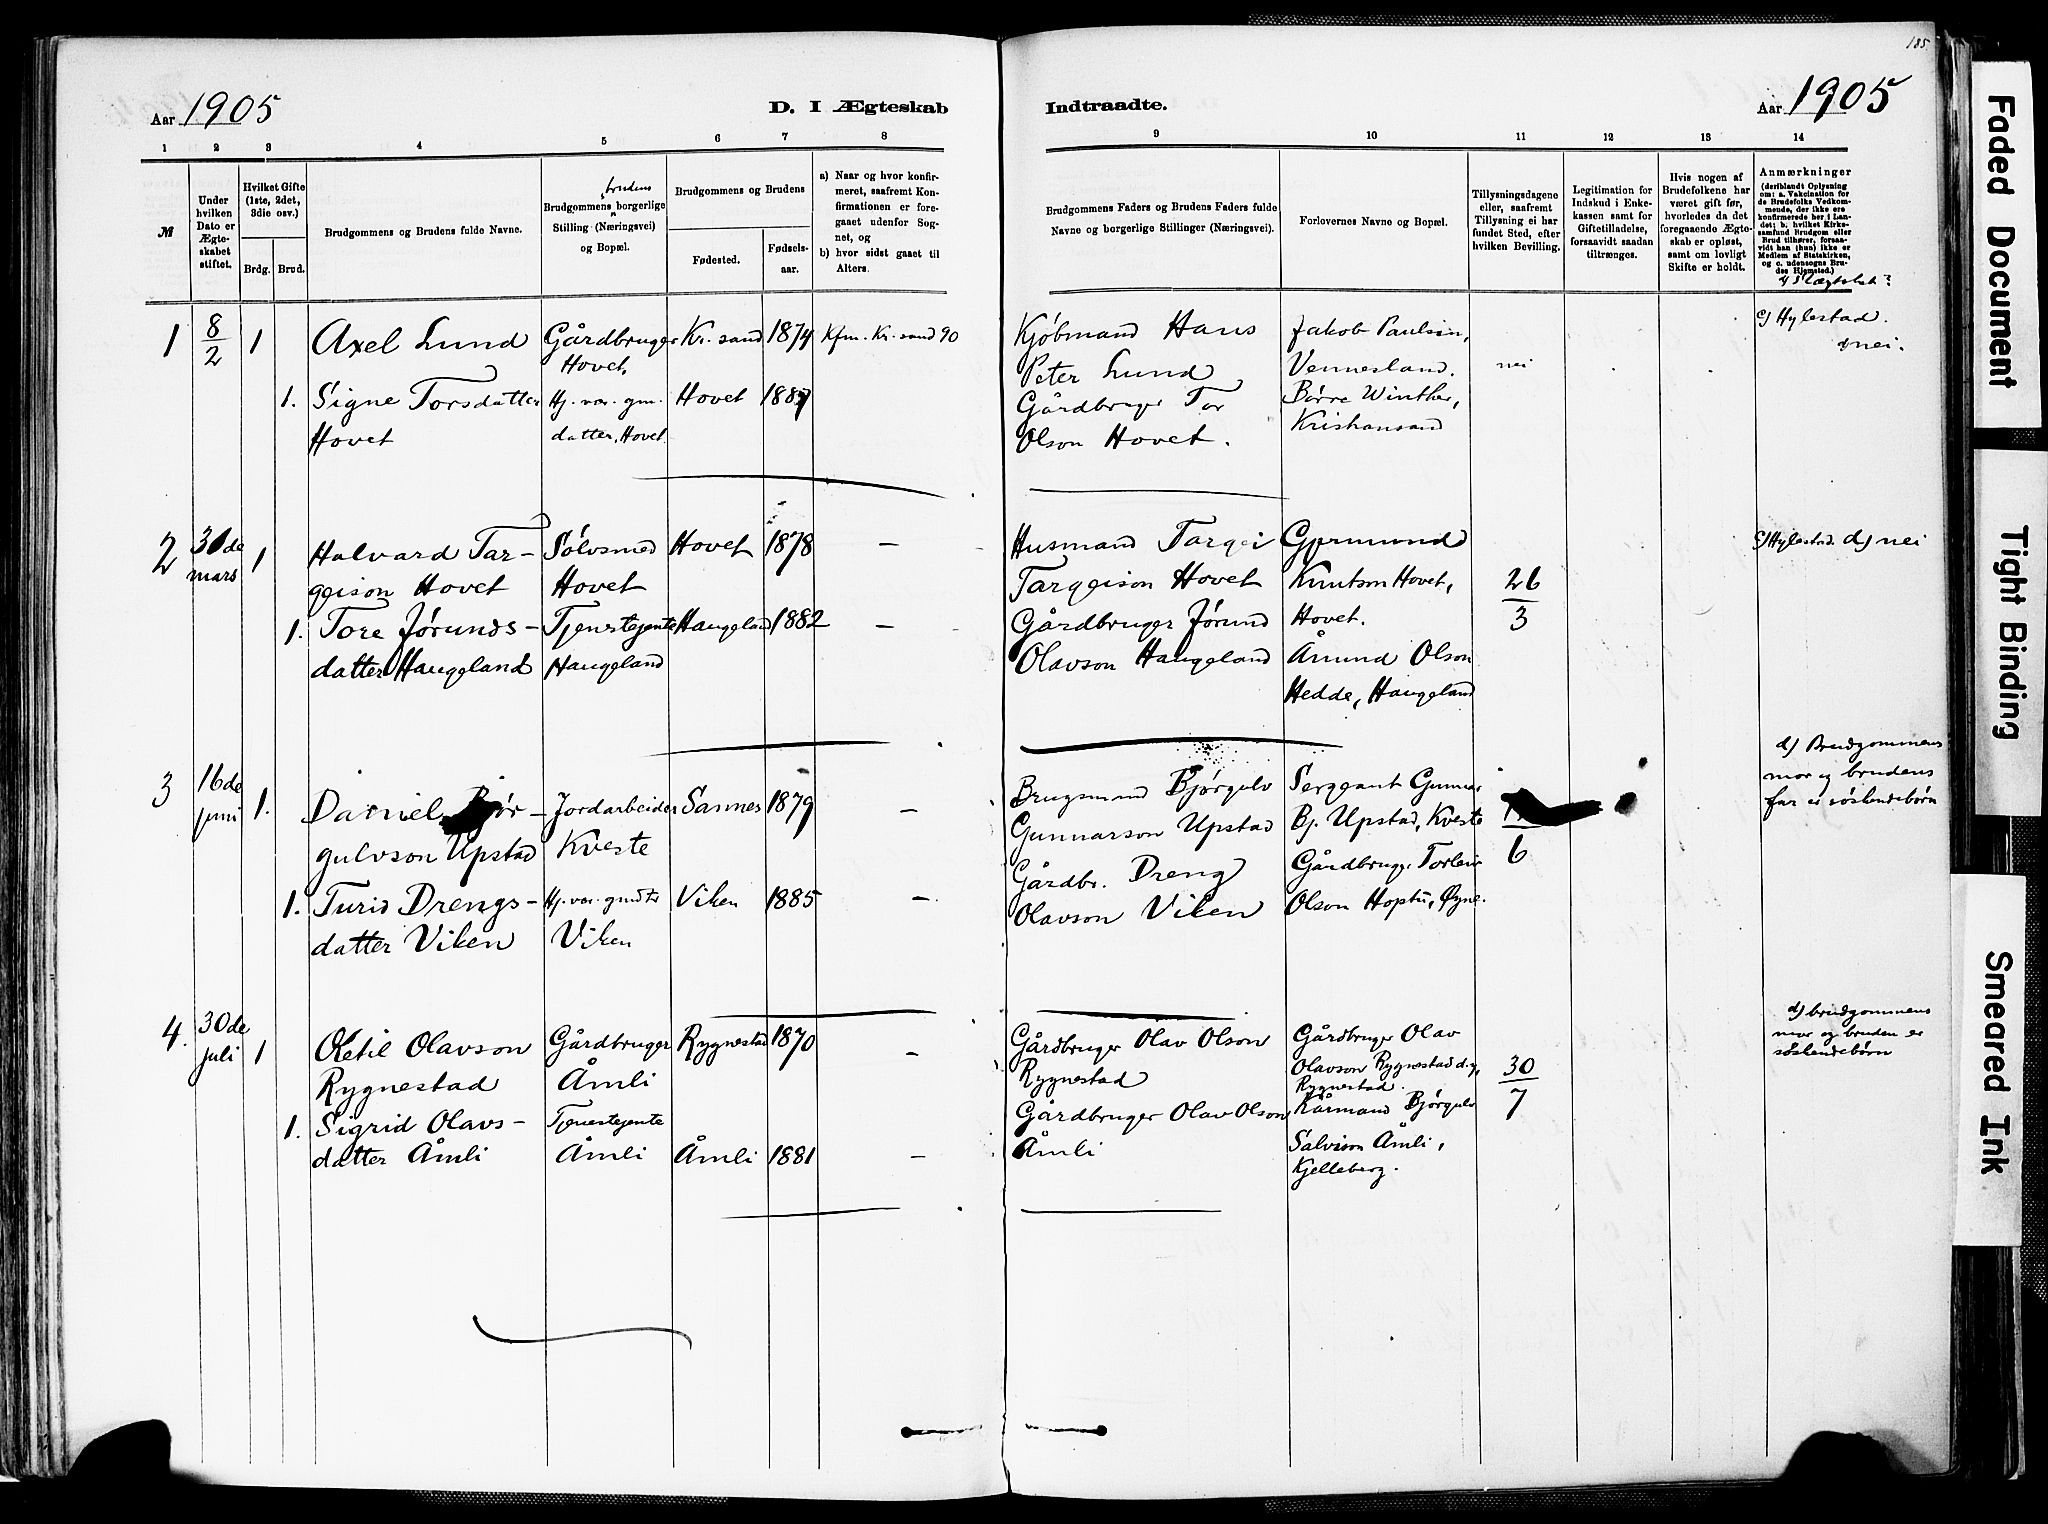 185
Aar 1905
D. I Ægteskab
Indtraadte.
Aar 1905
1 2 3 4 5 6 7 8
9 10 11 12 13 14
№
Under hvilken Dato er Ægteskabet stiftet.
Hvilket Gifte (1ste, 2det, 3die osv.)
Brdg. Brud.
Brudgommens og Brudens fulde Navne.
brudens
Brudgommens borgerlige Stilling (Næringsvei) og Bopæl.
Brudgommens og Brudens
Fødested.
Fødselsaar.
a) Naar og hvor konfirmeret, saafremt Konfirmationen er foregaaet udenfor Sognet, og
b) hvor sidst gaaet til Alters.
Brudgommens Faders og Brudens Faders fulde Navne og borgerlige Stillinger (Næringsvei).
Forlovernes Navne og Bopæl.
Tillysningsdagene eller, saafremt Tillysning ei har fundet Sted, efter hvilken Bevilling.
Legitimation for Indskud i Enkekassen samt for Giftetilladelse, forsaavidt saadan tiltrænges.
Hvis nogen af Brudefolkene har været gift før, hvorledes da det foregaaende Ægteskab er opløst, samt om lovligt Skifte er holdt.
Anmærkninger
(deriblandt Oplysning om: a. Vakcination for de Brudefolks Vedkommende, der ikke ere konfirmerede her i Landet; b. hvilket Kirkesamfund Brudgom eller Brud tilhører, forsaavidt han (hun) ikke er Medlem af Statskirken, og c. udensogns Brudes Hjemsted.)
d) Slægtskab?
1 8/2 1 Axel Lund Gårdbruger Kr. sand 1874 Kfm. Kr. sand 90
Hovet.
1. Signe Torsdatter Hj. vær. gm. Hovet 1887
Hovet datter, Hovet
Kjøbmand Hans Jakob Paulsen,
Peter Lund Vennesland. nei
Gårdbruger Tor Børre Winther,
Olson Hovet. Kristiansand
c) Hylestad.
d) nei.
2 30de mars 1 Halvard Tar- Sølvsmed Hovet 1878 —
geison Hovet Hovet
1. Tore Jørunds- Tjenstejente Haugeland 1882 —
datter Haugeland Haugeland
Husmand Targei Gyrmund
Targeison Hovet Knutson Hovet, 26/3
Gårdbruger Jørund Hovet.
Olavson Haugeland Åmund Olson
Hedde, Haugeland
c) Hylestad. d) nei
3 16de juni 1. Daniel Bjør- Jordarbeider Sarnes 1879 —
gulvson Upstad Kveste
1. Turid Drengs- Hj. vær. gmdtr Viken 1885 —
datter Viken Viken
Brugsmand Bjørgulv Sergeant Gunnar
Gunnarson Upstad Bj. Upstad, Kveste 6
Gårdbr. Dreng Gårdbrug. Torleiv
Olavson Viken Olson Hoptu, Øyne.
d) Brudgommens
mor og brudens
far er søskendebørn
4. 30de juli 1 Ketil Olavson Gårdbruger Rygnestad 1870 —
Rygnestad Åmli
1. Sigrid Olavs- Tjenestejente
datter Åmli Åmli Åmli 1881 —
Gårdbruger Olav Olson Gårdbruger Olav
Rygnestad Olavson Rygnestad d.y, 30/7
Rygnestad.
Gårdbruger Olav Olson Kårmand Bjørgulv
Åmli Salvison Åmli,
Kjelleberg.
d) brudgommens
mor og bruden er
søskendebørn
Faded Document
Tight Binding
Smeared Ink